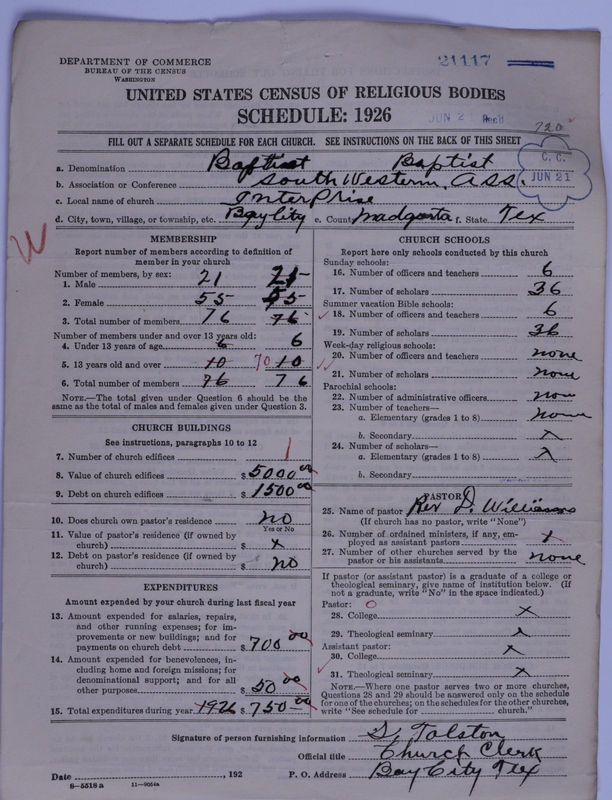 DEPARTMENT OF COMMERCE
BUREAU OF THE CENSUS
WASHINGTON
21117
UNITED STATES CENSUS OF RELIGIOUS BODIES
SCHEDULE: 1926
JUN 2 Rec'd
720
FILL OUT A SEPARATE SCHEDULE FOR EACH CHURCH. SEE INSTRUCTIONS ON THE BACK OF THIS SHEET
C. C.
JUN 21
a. Denomination Baptist Baptist
b. Association or Conference South Western. Ass.
c. Local name of church InterPrise
d. City, town, village, or township, etc. Bay City e. County Madgorta f. State Tex
MEMBERSHIP
Report number of members according to definition of member in your church
Number of members, by sex:
1. Male 21 21
2. Female 55 55
3. Total number of members 76 76
Number of members under and over 13 years old:
4. Under 13 years of age 6 6
5. 13 years old and over 10 70 10
6. Total number of members 76 76
NOTE.—The total given under Question 6 should be the same as the total of males and females given under Question 3.
CHURCH BUILDINGS
See instructions, paragraphs 10 to 12
7. Number of church edifices 1
8. Value of church edifices $ 5000 00
9. Debt on church edifices $ 1500 00
10. Does church own pastor's residence no
Yes or No
11. Value of pastor's residence (if owned by church) $ x
12. Debt on pastor's residence (if owned by church) $ no
EXPENDITURES
Amount expended by your church during last fiscal year
13. Amount expended for salaries, repairs, and other running expenses; for improvements or new buildings; and for payments on church debt $ 700 00
14. Amount expended for benevolences, including home and foreign missions; for denominational support; and for all other purposes $ 50 00
15. Total expenditures during year 1926 $ 750 00
CHURCH SCHOOLS
Report here only schools conducted by this church
Sunday schools:
16. Number of officers and teachers 6
17. Number of scholars 36
Summer vacation Bible schools:
18. Number of officers and teachers 6
19. Number of scholars 36
Week-day religious schools:
20. Number of officers and teachers none
21. Number of scholars none
Parochial schools:
22. Number of administrative officers none
23. Number of teachers—
a. Elementary (grades 1 to 8) none
b. Secondary x
24. Number of scholars—
a. Elementary (grades 1 to 8) x
b. Secondary
PASTOR
25. Name of pastor Rev D. Williams
(If church has no pastor, write "None")
26. Number of ordained ministers, if any, employed as assistant pastors x
27. Number of other churches served by the pastor or his assistants none
If pastor (or assistant pastor) is a graduate of a college or theological seminary, give name of institution below. (If not a graduate, write "No" in the space indicated.)
Pastor: O
28. College x
29. Theological seminary x
Assistant pastor:
30. College x
31. Theological seminary x
NOTE.—Where one pastor serves two or more churches, Questions 28 and 29 should be answered only on the schedule for one of the churches; on the schedules for the other churches, write "See schedule for church."
Signature of person furnishing information S. Tolston
Official title Church Clerk
Date , 192 P. O. Address Bay City Tex
8—5518 a 11—9054a